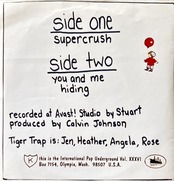 side one
supercrush
side two
you and me
hiding
recorded at Avast! Studio by Stuart
produced by Calvin Johnson
Tiger Trap is: Jen, Heather, Angela, Rose
K
this is the International Pop Underground Vol. XXXVI
Box 7154, Olympia, Wash. 98507 U.S.A.